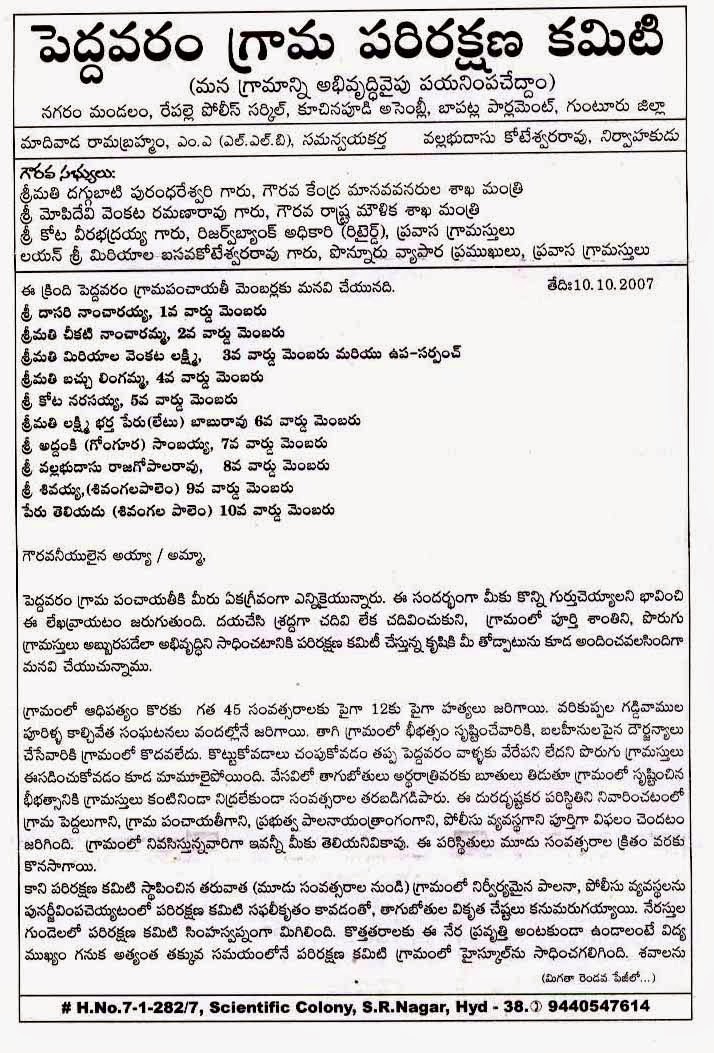 పెద్దవరం గ్రామ పరిరక్షణ కమిటి
(మన గ్రామాన్ని అభివృద్ధివైపు పయనింపచేద్దాం)
నగరం మండలం, రేపల్లె పోలీస్ సర్కిల్, కూచినపూడి అసెంబ్లీ, బాపట్ల పార్లమెంట్, గుంటూరు జిల్లా
మాదివాడ రామబ్రహ్మం, ఎం.ఎ (ఎల్.ఎల్.బి), సమన్వయకర్త వల్లభుదాసు కోటేశ్వరరావు, నిర్వాహకుడు
గౌరవ సభ్యులు:
శ్రీమతి దగ్గుబాటి పురంధరేశ్వరి గారు, గౌరవ కేంద్ర మానవవనరుల శాఖ మంత్రి
శ్రీ మోపిదేవి వెంకట రమణారావు గారు, గౌరవ రాష్ట్ర మౌళిక శాఖ మంత్రి
శ్రీ కోట వీరభద్రయ్య గారు, రిజర్వ్‌బ్యాంక్ అధికారి (రిటైర్డ్), ప్రవాస గ్రామస్తులు
లయన్ శ్రీ మిరియాల బసవకోటేశ్వరరావు గారు, పొన్నూరు వ్యాపార ప్రముఖులు, ప్రవాస గ్రామస్తులు
ఈ క్రింది పెద్దవరం గ్రామపంచాయతీ మెంబర్లకు మనవి చేయునది. తేదిః10.10.2007
శ్రీ దాసరి నాంచారయ్య, 1వ వార్డు మెంబరు
శ్రీమతి చీకటి నాంచారమ్మ, 2వ వార్డు మెంబరు
శ్రీమతి మిరియాల వెంకట లక్ష్మి, 3వ వార్డు మెంబరు మరియు ఉప-సర్పంచ్
శ్రీమతి బచ్చు లింగమ్మ, 4వ వార్డు మెంబరు
శ్రీ కోట నరసయ్య, 5వ వార్డు మెంబరు
శ్రీమతి లక్ష్మి భర్త పేరు(లేటు) బాబురావు 6వ వార్డు మెంబరు
శ్రీ అద్దంకి (గోంగూర) సాంబయ్య, 7వ వార్డు మెంబరు
శ్రీ వల్లభుదాసు రాజగోపాలరావు, 8వ వార్డు మెంబరు
శ్రీ శివయ్య,(శివంగలపాలెం) 9వ వార్డు మెంబరు
పేరు తెలియదు (శివంగల పాలెం) 10వ వార్డు మెంబరు
గౌరవనీయులైన అయ్యా / అమ్మా,
పెద్దవరం గ్రామ పంచాయతీకి మీరు ఏకగ్రీవంగా ఎన్నికైయున్నారు. ఈ సందర్భంగా మీకు కొన్ని గుర్తుచెయ్యాలని భావించి
ఈ లేఖవ్రాయటం జరుగుతుంది. దయచేసి శ్రద్ధగా చదివి లేక చదివించుకుని, గ్రామంలో పూర్తి శాంతిని, పొరుగు
గ్రామస్తులు అబ్బురపడేలా అభివృద్ధిని సాధించటానికి పరిరక్షణ కమిటీ చేస్తున్న కృషికి మీ తోడ్పాటును కూడ అందించవలసిందిగా
మనవి చేయుచున్నాము.
గ్రామంలో ఆధిపత్యం కొరకు గత 45 సంవత్సరాలకు పైగా 12కు పైగా హత్యలు జరిగాయి. వరికుప్పల గడ్డివాముల
పూరిళ్ళ కాల్చివేత సంఘటనలు వందల్లోనే జరిగాయి. తాగి గ్రామంలో భీభత్సం సృష్టించేవారికి, బలహీనులపైన దౌర్జన్యాలు
చేసేవారికి గ్రామంలో కొదవలేదు. కొట్టుకోవడాలు చంపుకోవడం తప్ప పెద్దవరం వాళ్ళకు వేరేపని లేదని పొరుగు గ్రామస్తులు
ఈసడించుకోవడం కూడ మామూలైపోయింది. వేసవిలో తాగుబోతులు అర్థరాత్రివరకు బూతులు తిడుతూ గ్రామంలో సృష్టించిన
భీభత్సానికి గ్రామస్తులు కంటినిండా నిద్రలేకుండా సంవత్సరాల తరబడిగడిపారు. ఈ దురదృష్టకర పరిస్థితిని నివారించటంలో
గ్రామ పెద్దలుగాని, గ్రామ పంచాయతీగాని, ప్రభుత్వ పాలనాయంత్రాంగంగాని, పోలీసు వ్యవస్థగాని పూర్తిగా విఫలం చెందటం
జరిగింది. గ్రామంలో నివసిస్తున్నవారిగా ఇవన్నీ మీకు తెలియనివికావు. ఈ పరిస్థితులు మూడు సంవత్సరాల క్రితం వరకు
కొనసాగాయి.
కాని పరిరక్షణ కమిటి స్థాపించిన తరువాత (మూడు సంవత్సరాల నుండి) గ్రామంలో నిర్వీర్యమైన పాలనా, పోలీసు వ్యవస్థలను
పునర్జీవింపచెయ్యటంలో పరిరక్షణ కమిటి సఫలీకృతం కావడంతో, తాగుబోతుల వికృత చేష్టలు కనుమరుగయ్యాయి. నేరస్తుల
గుండెలలో పరిరక్షణ కమిటి సింహస్వప్నంగా మిగిలింది. కొత్తతరాలకు ఈ నేర ప్రవృత్తి అంటకుండా ఉండాలంటే విద్య
ముఖ్యం గనుక అత్యంత తక్కువ సమయంలోనే పరిరక్షణ కమిటి గ్రామంలో హైస్కూల్‌ను సాధించగలిగింది. శవాలను
(మిగతా రెండవ పేజీలో...)
# H.No.7-1-282/7, Scientific Colony, S.R.Nagar, Hyd - 38.✆ 9440547614